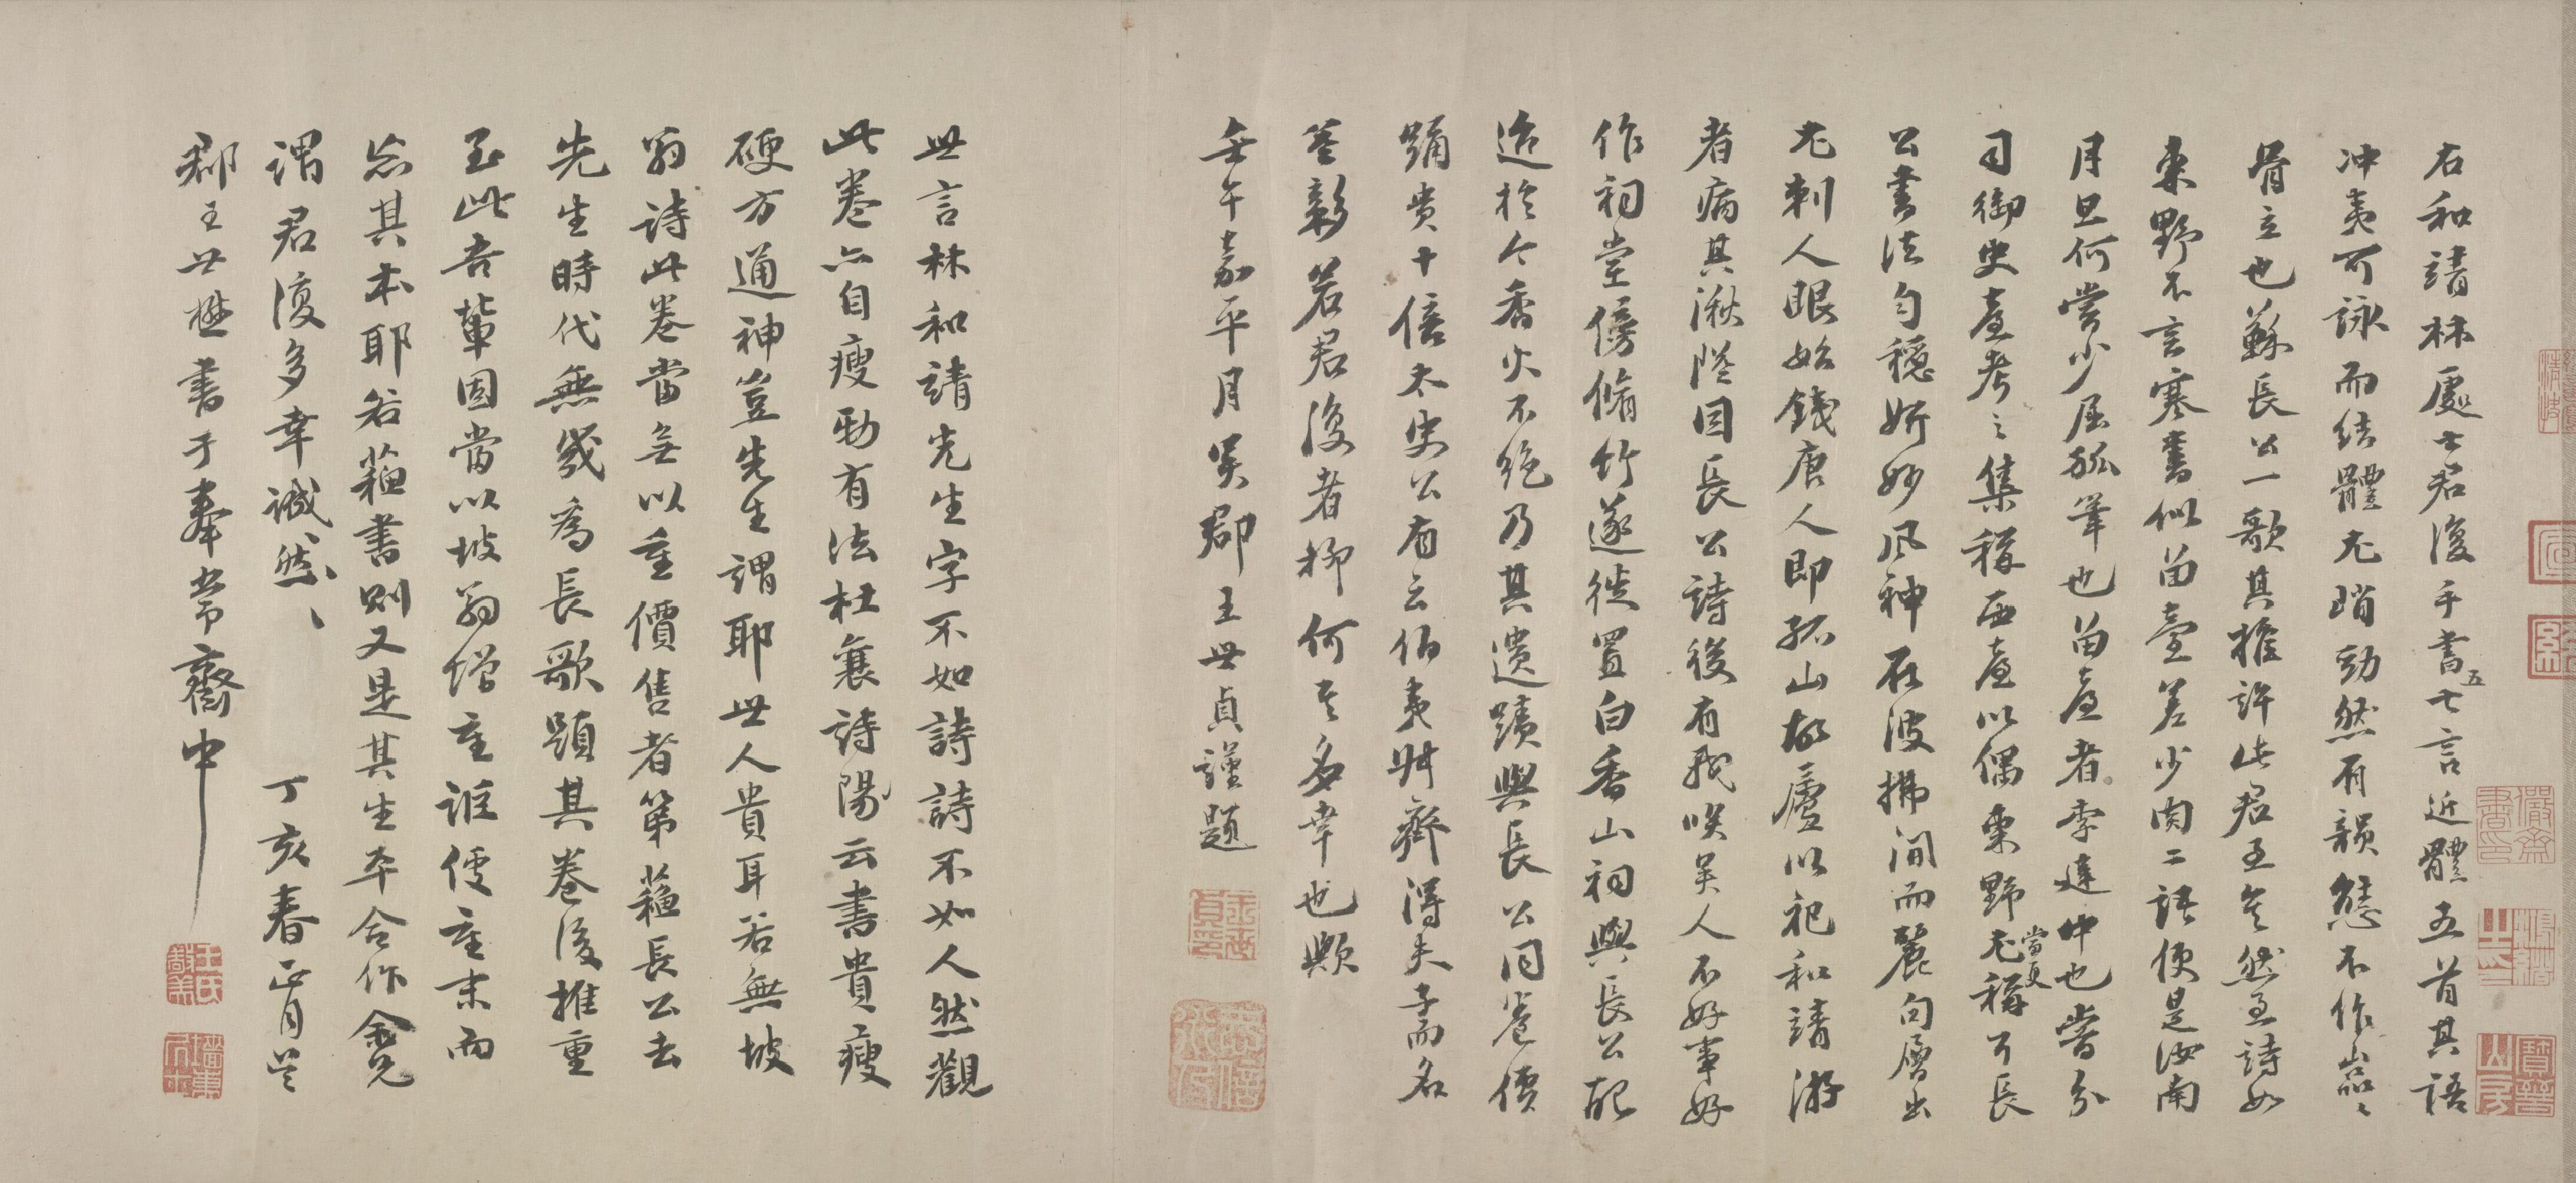 右和靖林處士君復手書五七言近體五首其語
冲夷可詠而結體尤峭勁然有韻態不作嵓嵓
骨立也蘇長公一歌其推許此君至矣然至詩如
東野不言寒書似留臺差少肉二語便是汝南
月旦何嘗少屈孤筆也留臺者李建中也嘗分
司御史臺考之集稱西臺以偶東野尤稱當更可長
公書法勻穩妍妙風神在波拂間而麗句層出
尤刺人眼始錢唐人即孤山故廬以祀和靖游
者病其湫隘因長公詩後有我笑吳人不好事好
作祠堂傍脩竹遂徙置白香山祠與長公配
迨於今香火不絕乃其遺蹟與長公同卷價
踊貴十倍太史公有云伯夷叔齊得夫子而名
益彰若君復者抑何其多幸也歟
壬午嘉平月吳郡王世貞謹題
世言林和靖先生字不如詩詩不如人然觀
此卷亦自瘦勁有法杜襄詩陽云書貴瘦
硬方通神豈先生謂耶世人貴耳若無坡
翁詩此卷當無以重價售者第蘇長公去
先生時代無幾為長歌題其卷後推重
至此吾輩固當以坡翁增重誰使重末而
忘其本耶若蘇書則又是其生平合作余兄
謂君復多幸誠然誠然丁亥春正月吳
郡王世懋書于奉常齋中